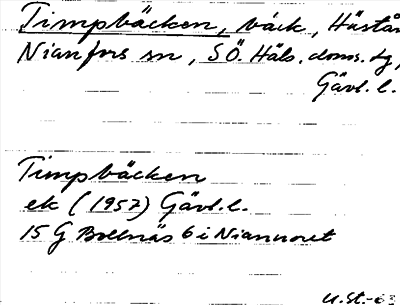 Timpbäcken, bäck, Hästå
Nianfors sn, SÖ. Häls. doms. dg,
Gävl. l.
Timpbäcken
ek (1957) Gävl. l.
15 G Bollnäs 6 i Niannoret
U.St.-63